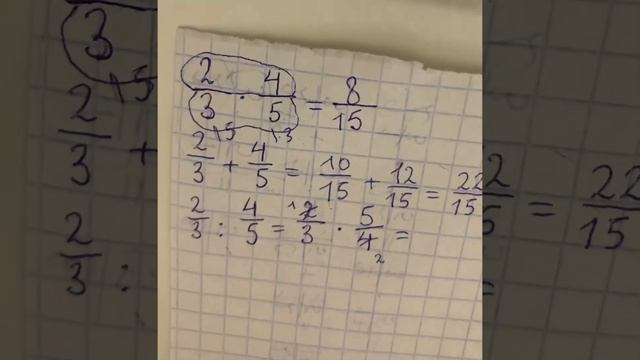 2/3 · 4/5 = 8/15
2\5/3 + 4\3/5 = 10/15 + 12/15 = 22/15
2/3 : 4/5 = 2 1/3 · 5/4 2 =